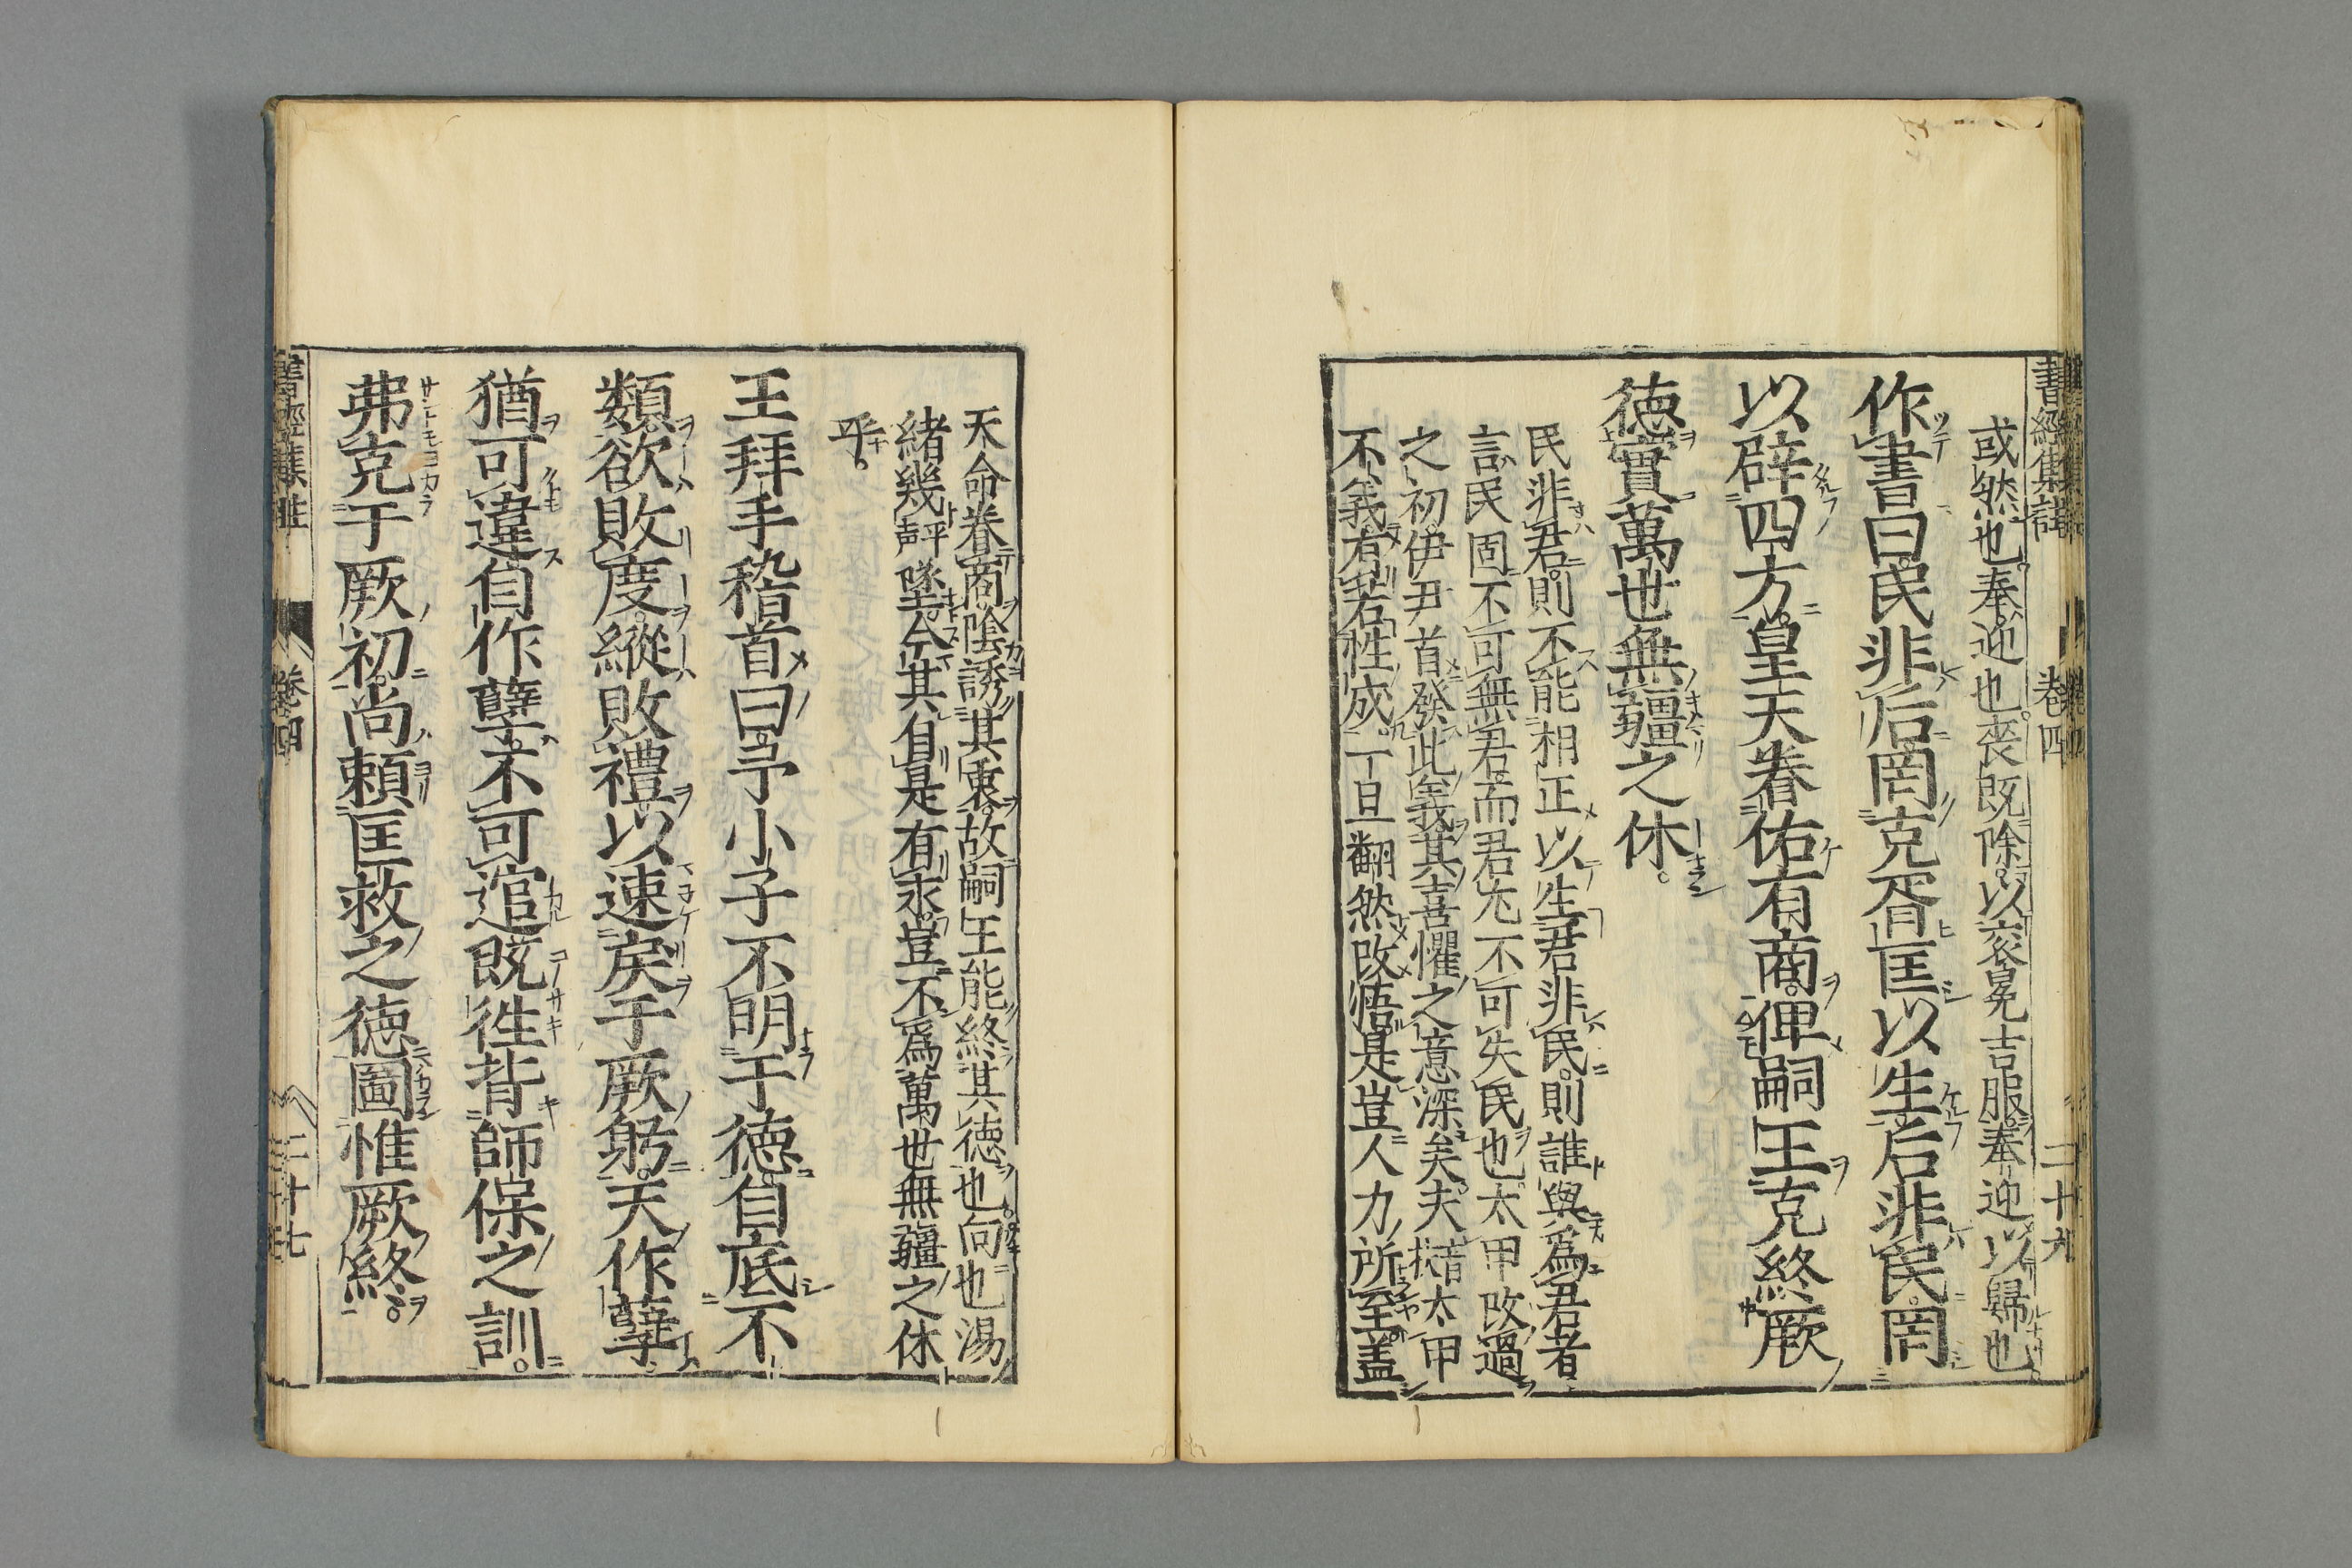 書經集註 卷四 二十九
或然也。奉。迎也。喪既除。以衮冕吉服。奉迎以歸也。
作書曰。民非后。罔克胥匡以生。后非民。罔
以辟四方。皇天眷佑有商。俾嗣王克終厥
德。實萬世無疆之休。
民非君。則不能相正以生。君非民。則誰與爲君者。
言民固不可無君。而君尤不可失民也。太甲改過
之初。伊尹首發此義。其喜懼之意深矣。夫音扶太甲
不義。有若性成。一旦翻然改悟。是豈人力所至。蓋
天命眷商。陰誘其衷。故嗣王能終其德也。向也湯
緒幾平声墜。今其自是有永。豈不爲萬世無疆之休
乎。
王拜手稽首曰。予小子不明于德。自底不
類。欲敗度。縱敗禮。以速戾于厥躬。天作孽。
猶可違。自作孽。不可逭。既往背師保之訓。
弗克于厥初。尚賴匡救之德。圖惟厥終。
書經集註 卷四 二十七